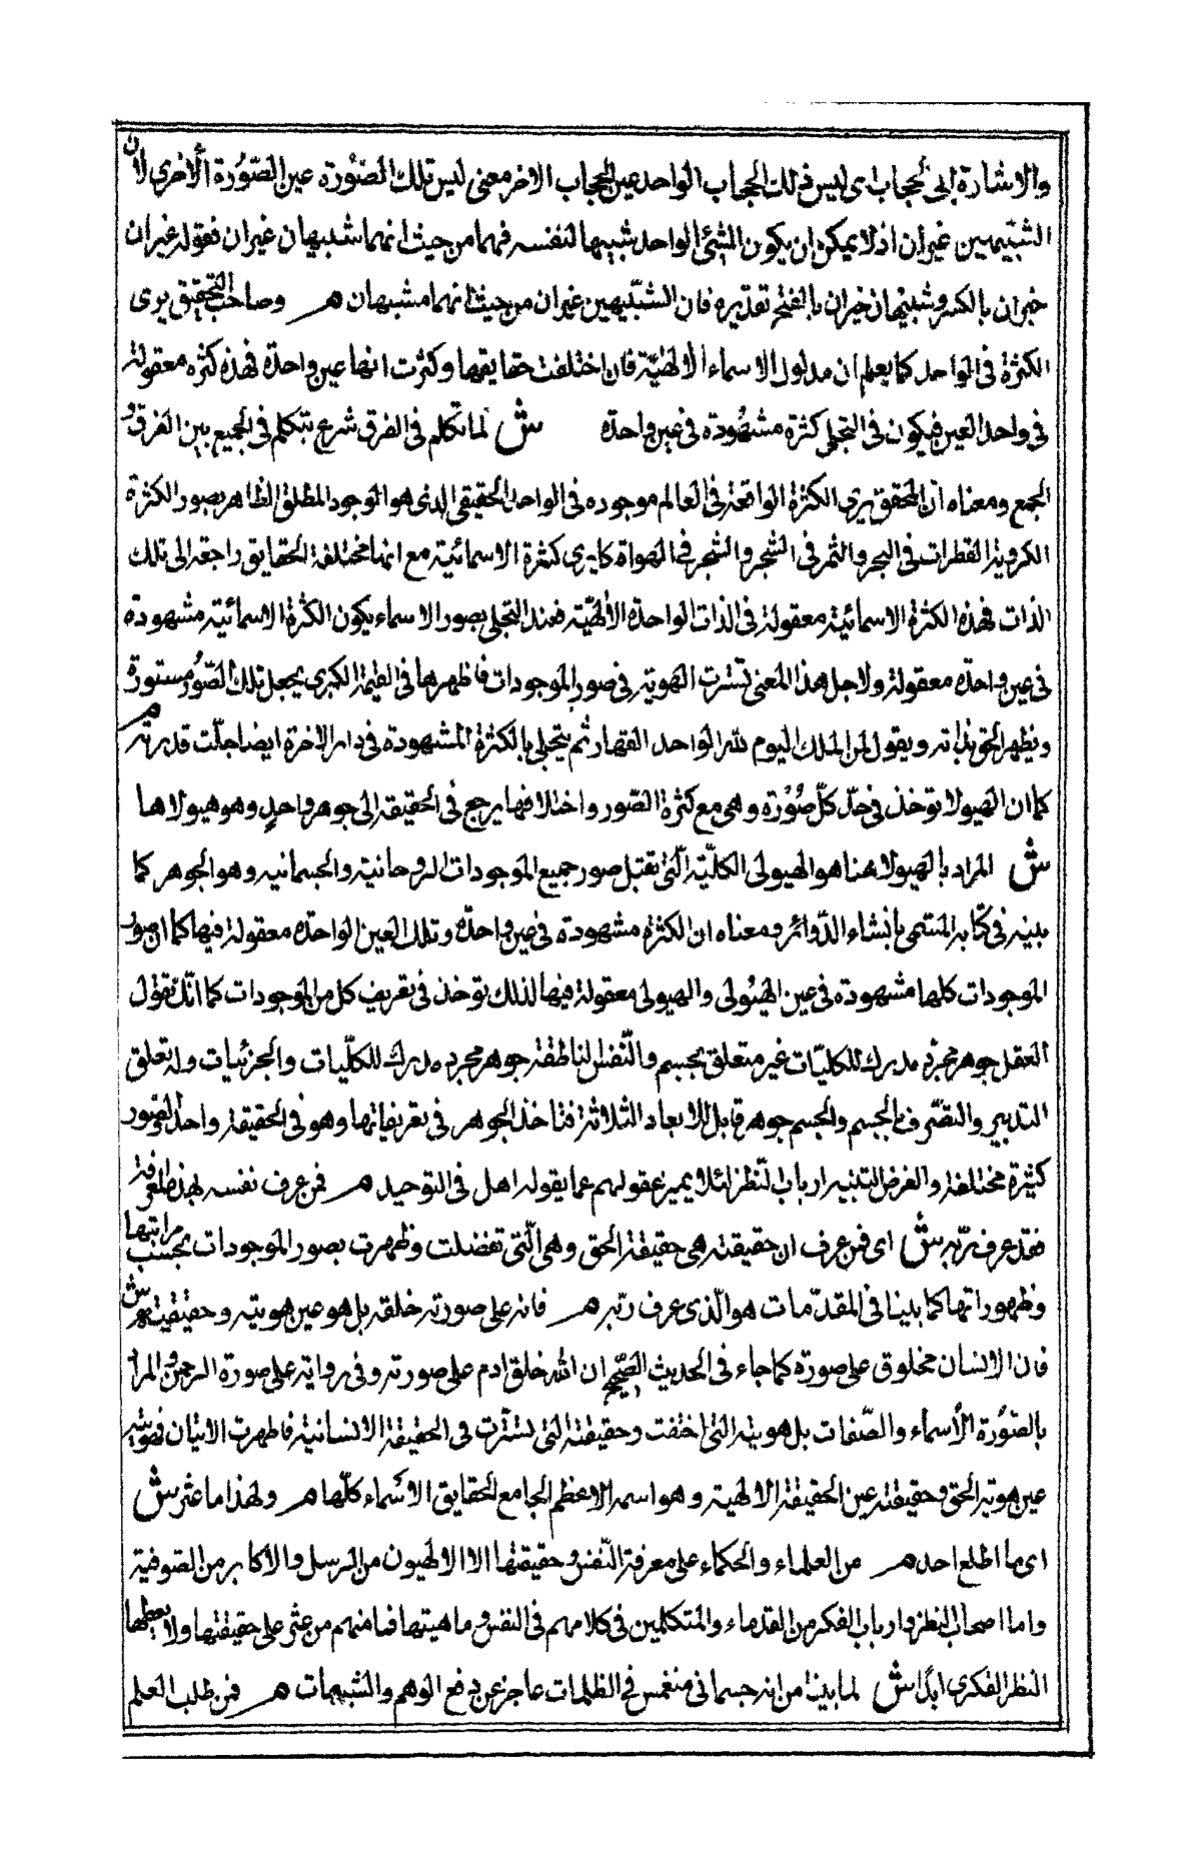 والاشارة إلى الحجاب اى ليس ذلك الحجاب الواحد عين الحجاب الاخر معنى ليس تلك الصّورة عين الصّورة الأخرى لان
الشبيهين غيران اذ لا يمكن ان يكون الشئ الواحد شبيها لنفسه فهما من حيث انهما شبيهان غيران فقوله غيران
خبران بالكسر وشبيهان خبران بالفتح تقديره فان الشبيهين غيران من حيث انهما مشبهان م وصاحب التحقيق يرى
الكثرة فى الواحد كما يعلم ان مدلول الاسماء الالهيّة فان اختلفت حقايقها وكثرت انها عين واحدة فهذه كثره معقولة
فى واحد العين فيكون فى التجلى كثرة مشهوده فى عين واحده ش لما تكلم فى الفرق شرع يتكلم فى الجميع بين الفرق و
الجمع ومعناه ان المحقق يرى الكثرة الواقعة فى العالم موجوده فى الواحد الحقيقى الذى هو الوجود المطلق الظاهر بصور الكثرة
الكرؤية القطرات فى البحر والثمر فى الشجر والشجر فى النواة كما يرى كثرة الاسمائية مع انها مختلفة الحقايق راجعة الى تلك
الذات فهذه الكثرة الاسمائية معقولة فى الذات الواحدة الالهيّة فعند التجلى بصور الاسماء يكون الكثرة الاسمائية مشهودة
فى عين واحده معقولة ولاجل هذا المعنى تسترت الهوية فى صور الموجودات فاظهرها فى القيمة الكبرى يجعل تلك الصّور مستورة
ويظهر الحق بذاته ويقول لمن الملك اليوم لله الواحد القهار ثم يتجلى بالكثرة المشهودة فى دار الاخرة ايضا جلّت قدرته م
كما ان الهيولا توخذ فى حدّ كلّ صورة وهى مع كثرة الصّور واختلافها يرجع فى الحقيقة الى جوهر واحد وهو هيولاها
ش المراد بالهيولا هنا هو الهيولى الكلّية الّتى تقبل صور جميع الموجودات الروحانية والجسمانيه وهو الجوهر كما
بينه فى كتابه المسمى بانشاء الدّوائر ومعناه ان الكثرة مشهودة فى عين واحدة وتلك العين الواحدة معقولة فيها كما ان صور
الموجودات كلها مشهودة فى عين الهيولى والهيولى معقولة فيها لذلك توخذ فى تعريف كل من الموجودات كما انّك تقول
العقل جوهر مجرّد مدرك للكليّات غير متعلق بجسم والنّفس الناطقة جوهر مجرد مدرك للكلّيات والجزئيات وله تعلق
التدبير والتصّرف بالجسم والجسم جوهر قابل للابعاد الثلاثة فتاخذ الجوهر فى تعريفاتها وهو فى الحقيقة واحد والصور
كثيرة مختلفة والغرض التنبيه ارباب النّظر لئلا يميز عقولهم عما يقوله اهل فى التوحيد م فمن عرف نفسه بهذه المعرفة
فقد عرف ربّه ش اى فمن عرف ان حقيقته هى حقيقة الحق وهى الّتى تفصلت وظهرت بصور الموجودات بحسب مراتبها
وظهوراتها كما بينا فى المقدّمات هو الّذى عرف ربّه م فانه على صورته خلقه بل هو عين هويته وحقيقيته ش
فان الانسان مخلوق على صورة كما جاء فى الحديث الصّحيح ان الله خلق ادم على صورته وفى رواية على صورة الرحمن والمراد
بالصّورة الأسماء والصّفات بل هويته التى اختفت وحقيقته التى تسترت فى الحقيقة الانسانية فاظهرت الانيان فهويته
عين هوية الحق وحقيقته عين الحقيقة الالهية وهو اسمه الاعظم الجامع لحقايق الاسماء كلّها م ولهذا ما عثر ش
اى ما اطلع احد م من العلماء والحكماء على معرفة النّفس وحقيقتها الا الالهيون من الرسل والأكابر من الصوفية
واما اصحاب النظر وارباب الفكر من القدماء والمتكلمين فى كلامهم فى النفس وماهيتها فما منهم من عثر على حقيقتها ولا يعطيها
النظر الفكرى ابدًا ش لما بينا من انه جسمانى منغمس فى الظلمات عاجز عن دفع الوهم والشبهات م فمن طلب العلم